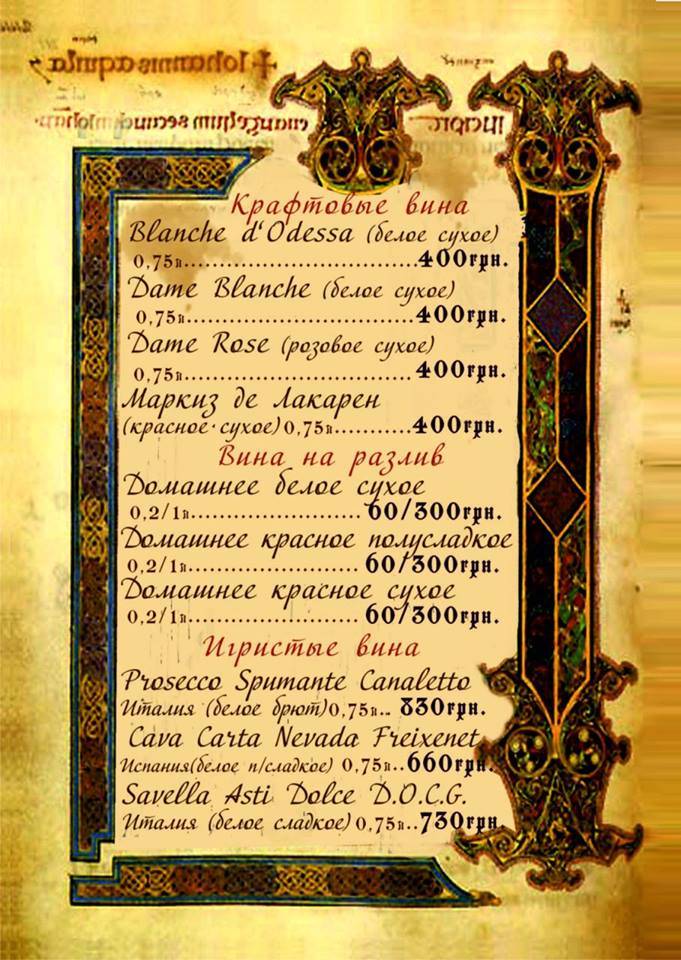 Крафтовые вина
Blanche d'Odessa (белое сухое)
0,75л.................................400грн.
Dame Blanche (белое сухое)
0,75л.................................400грн.
Dame Rose (розовое сухое)
0,75л.................................400грн.
Маркиз де Лакарен
(красное·сухое) 0,75л...........400грн.
Вина на разлив
Домашнее белое сухое
0,2/1л........................60/300грн.
Домашнее красное полусладкое
0,2/1л........................60/300грн.
Домашнее красное сухое
0,2/1л........................60/300грн.
Игристые вина
Prosecco Spumante Canaletto
Италия (белое брют) 0,75л.. 830грн.
Cava Carta Nevada Freixenet
Испания(белое п/сладкое) 0,75л..660грн.
Savella Asti Dolce D.O.C.G.
Италия (белое сладкое) 0,75л..730грн.